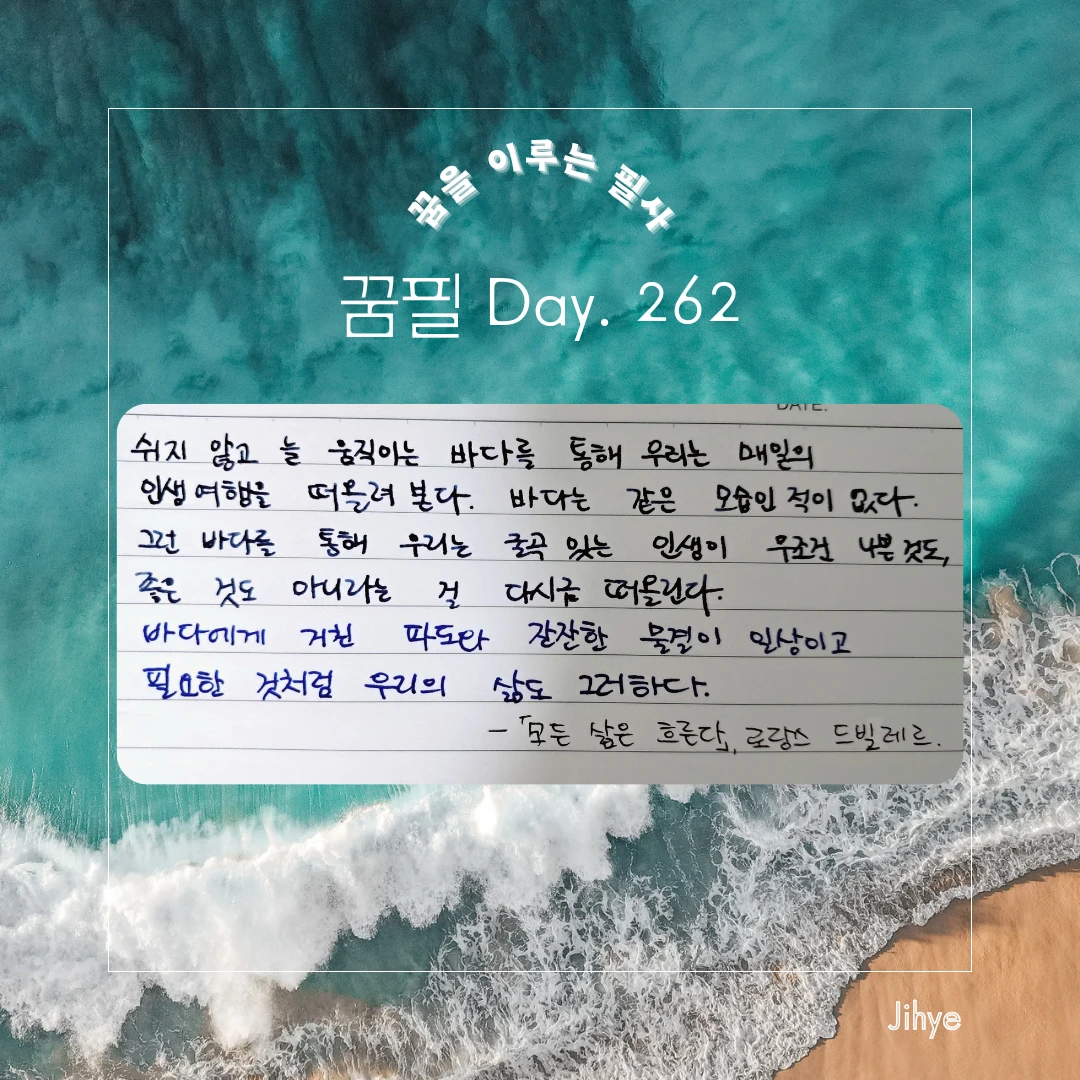 꿈을 이루는 필사
꿈필 Day. 262
DATE.
쉬지 않고 늘 움직이는 바다를 통해 우리는 매일의
인생 여행을 떠올려 본다. 바다는 같은 모습인 적이 없다.
그런 바다를 통해 우리는 굴곡 있는 인생이 무조건 나쁜 것도,
좋은 것도 아니라는 걸 다시금 떠올린다.
바다에게 거친 파도와 잔잔한 물결이 일상이고
필요한 것처럼 우리의 삶도 그러하다.
-「모든 삶은 흐른다」, 로랑스 드빌레르.
Jihye